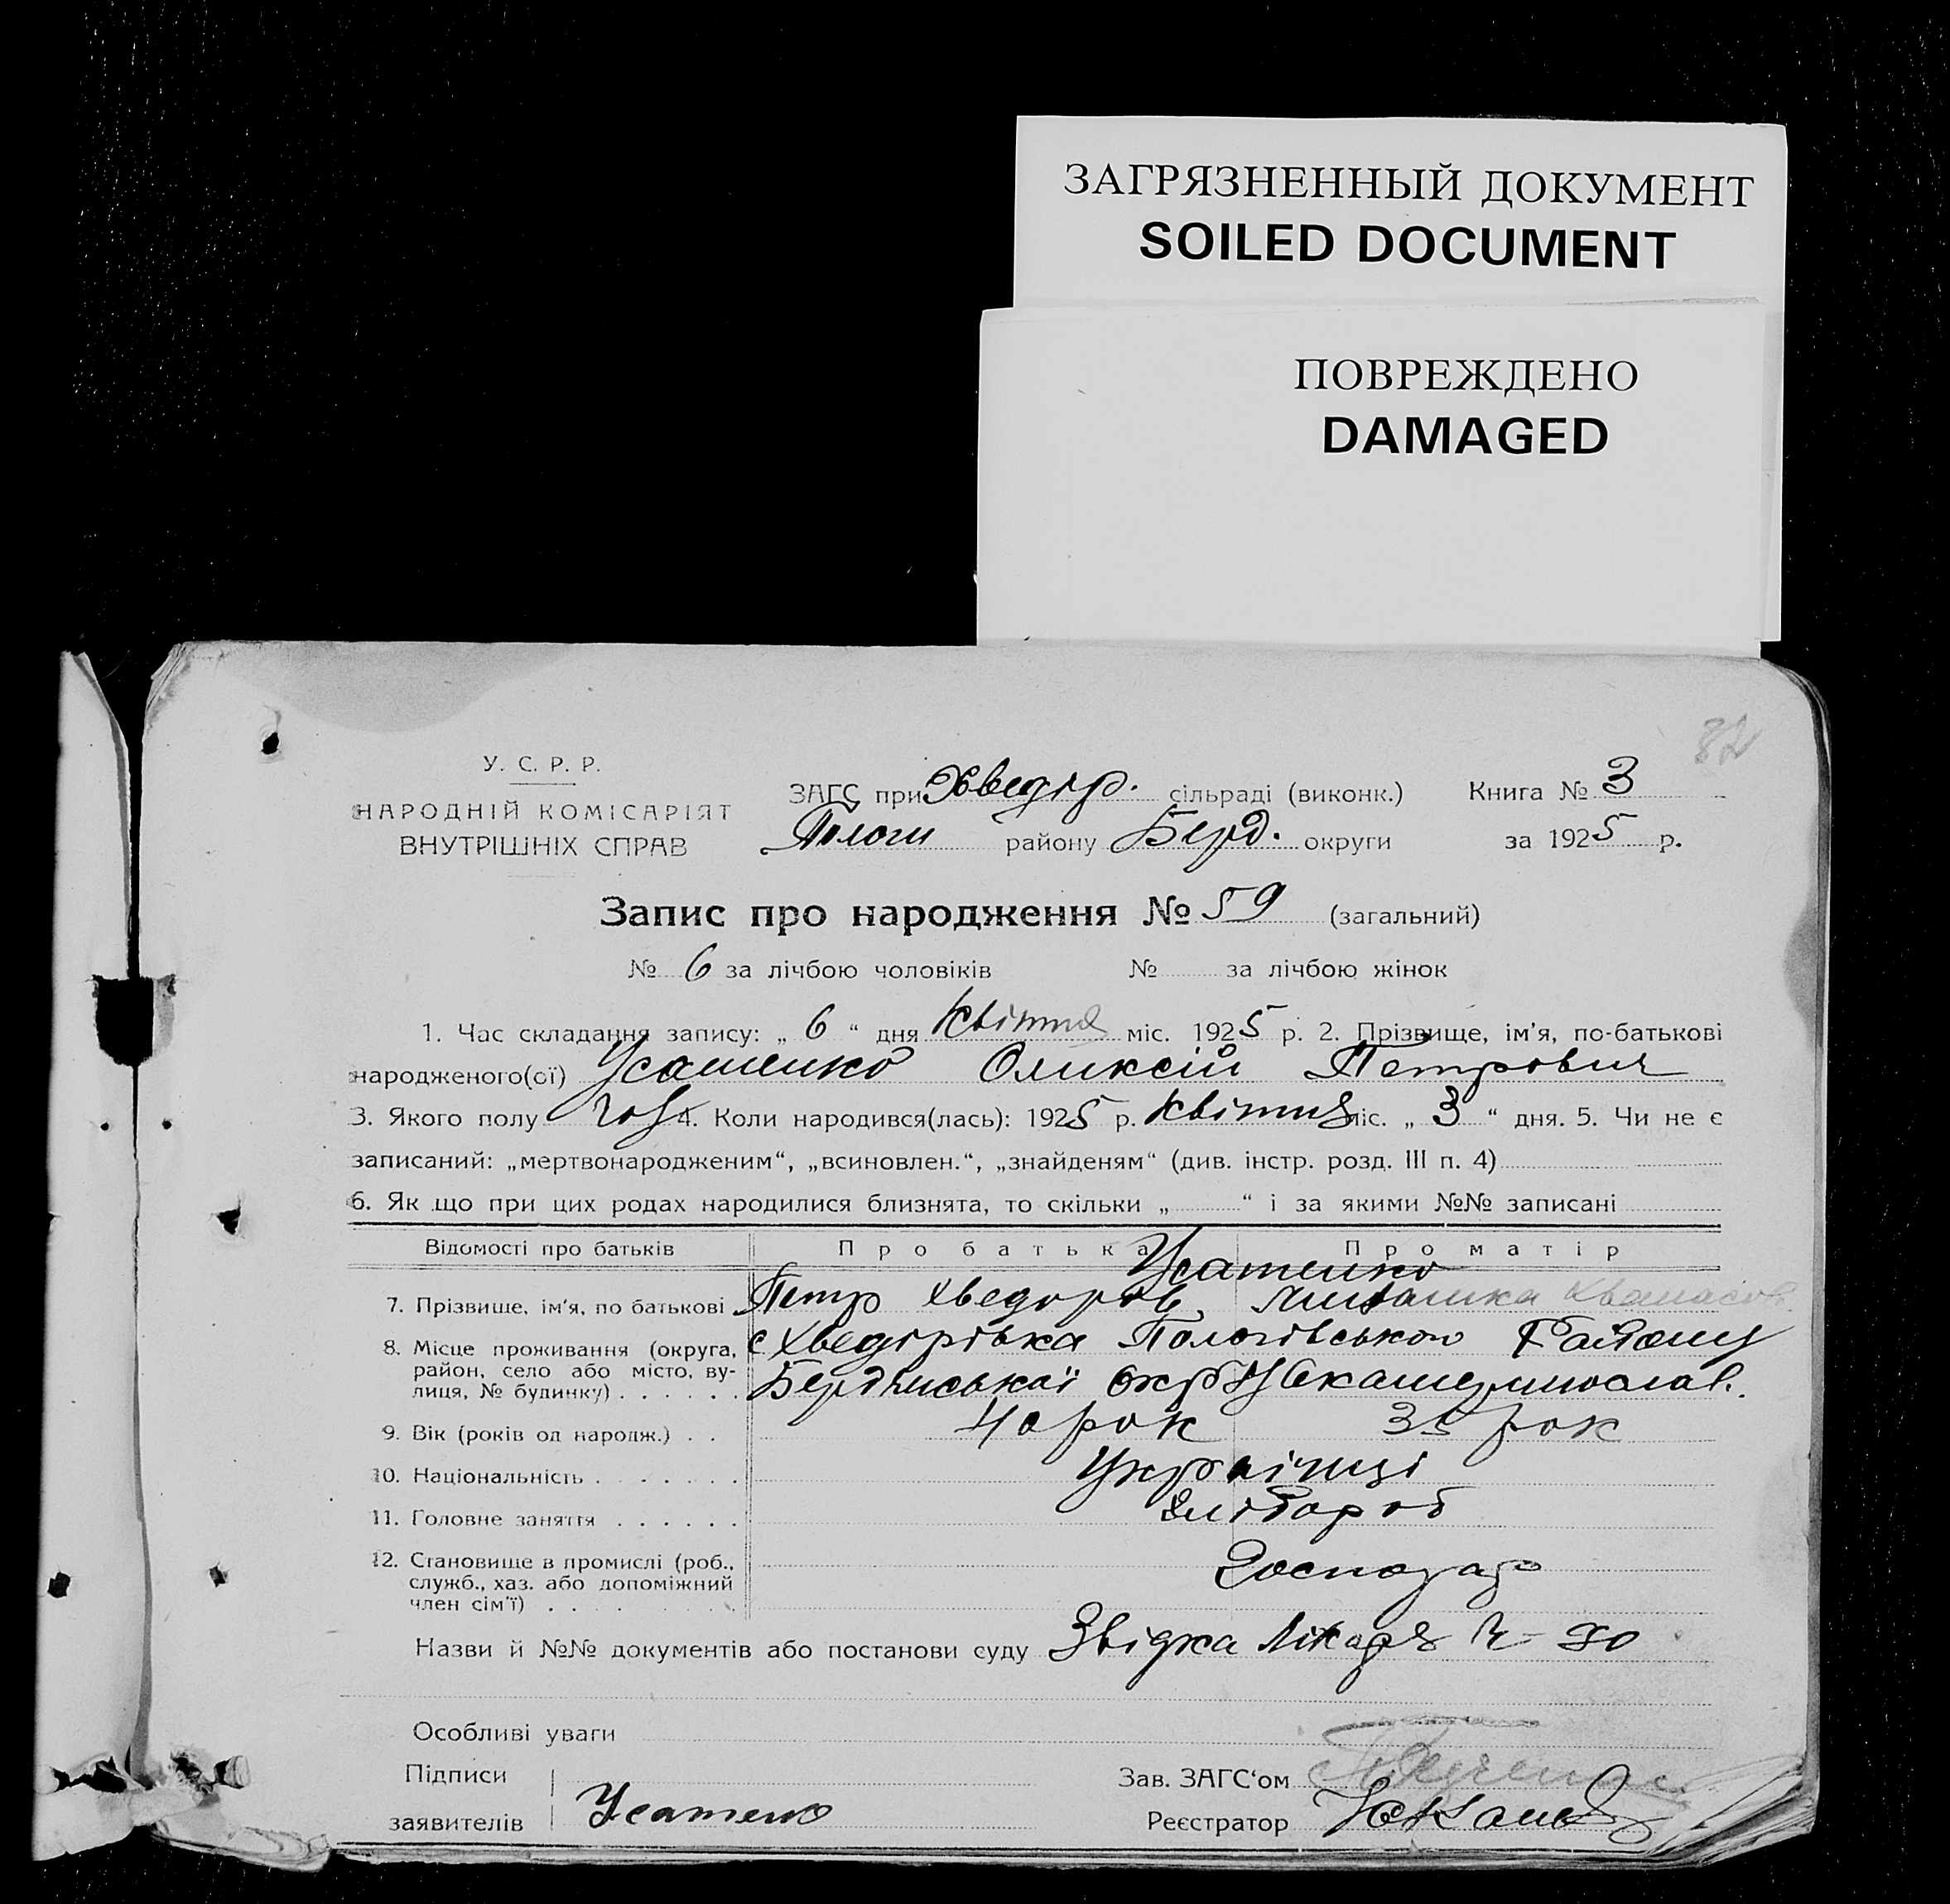 ЗАГРЯЗНЕННЫЙ ДОКУМЕНТ
SOILED DOCUMENT
ПОВРЕЖДЕНО
DAMAGED
82
У. С. Р. Р.
НАРОДНІЙ КОМІСАРІЯТ
ВНУТРІШНІХ СПРАВ
ЗАГС при Хведір. сільраді (виконк.) Книга № 3
Пологи району Берд. округи за 1925 р.
Запис про народження № 59 (загальний)
№ 6 за лічбою чоловіків № за лічбою жінок
1. Час складання запису: „ 6 “ дня Квітня міс. 1925 р. 2. Прізвище, ім'я, по-батькові
народженого(ої) Усатенко Оликсій Петрович
3. Якого полу 4. Коли народився(лась): 1925 р. Квітня міс. „ 3 “ дня. 5. Чи не є
записаний: „мертвонародженим“, „всиновлен.“, „знайденям“ (див. інстр. розд. III п. 4)
6. Як що при цих родах народилися близнята, то скільки „ “ і за якими №№ записані
Відомості про батьків Про батька Про матір
Усатенко
7. Прізвище, ім'я, по батькові Петр Хведоров,
8. Місце проживання (округа, район, село або місто, вулиця, № будинку) с Хведірівка Пологівського Району
Бердянської окр
9. Вік (років од народж.) 40 рок 35 рок
10. Національність Українці
11. Головне заняття Хлібороб
12. Становище в промислі (роб., служб., хаз. або допоміжний член сім'ї) Господар
Назви й №№ документів або постанови суду Звідка Лікаря
Особливі уваги
Підписи заявителів Усатенко
Зав. ЗАГС‘ом
Реєстратор